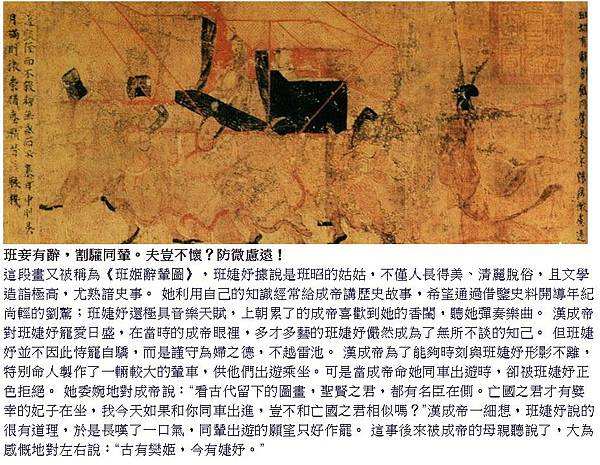 班妾有辭，割驩同輦。夫豈不懷？防微慮遠！
這段畫又被稱為《班姬辭輦圖》，班婕妤據說是班昭的姑姑，不僅人長得美、清麗脫俗，且文學
造詣極高，尤熟諳史事。 她利用自己的知識經常給成帝講歷史故事，希望通過借鑒史料開導年紀
尚輕的劉驁；班婕妤還極具音樂天賦，上朝累了的成帝喜歡到她的香閨，聽她彈奏樂曲。 漢成帝
對班婕妤寵愛日盛，在當時的成帝眼裡，多才多藝的班婕妤儼然成為了無所不談的知己。 但班婕
妤並不因此恃寵自驕，而是謹守為婦之德，不越雷池。 漢成帝為了能夠時刻與班婕妤形影不離，
特別命人製作了一輛較大的輦車，供他們出遊乘坐。可是當成帝命她同車出遊時，卻被班婕妤正
色拒絕。 她委婉地對成帝說：“看古代留下的圖畫，聖賢之君，都有名臣在側。亡國之君才有嬖
幸的妃子在坐，我今天如果和你同車出進，豈不和亡國之君相似嗎？”漢成帝一細想，班婕妤說的
很有道理，於是長嘆了一口氣，同輦出遊的願望只好作罷。 這事後來被成帝的母親聽說了，大為
感慨地對左右說：“古有樊姬，今有婕妤。”